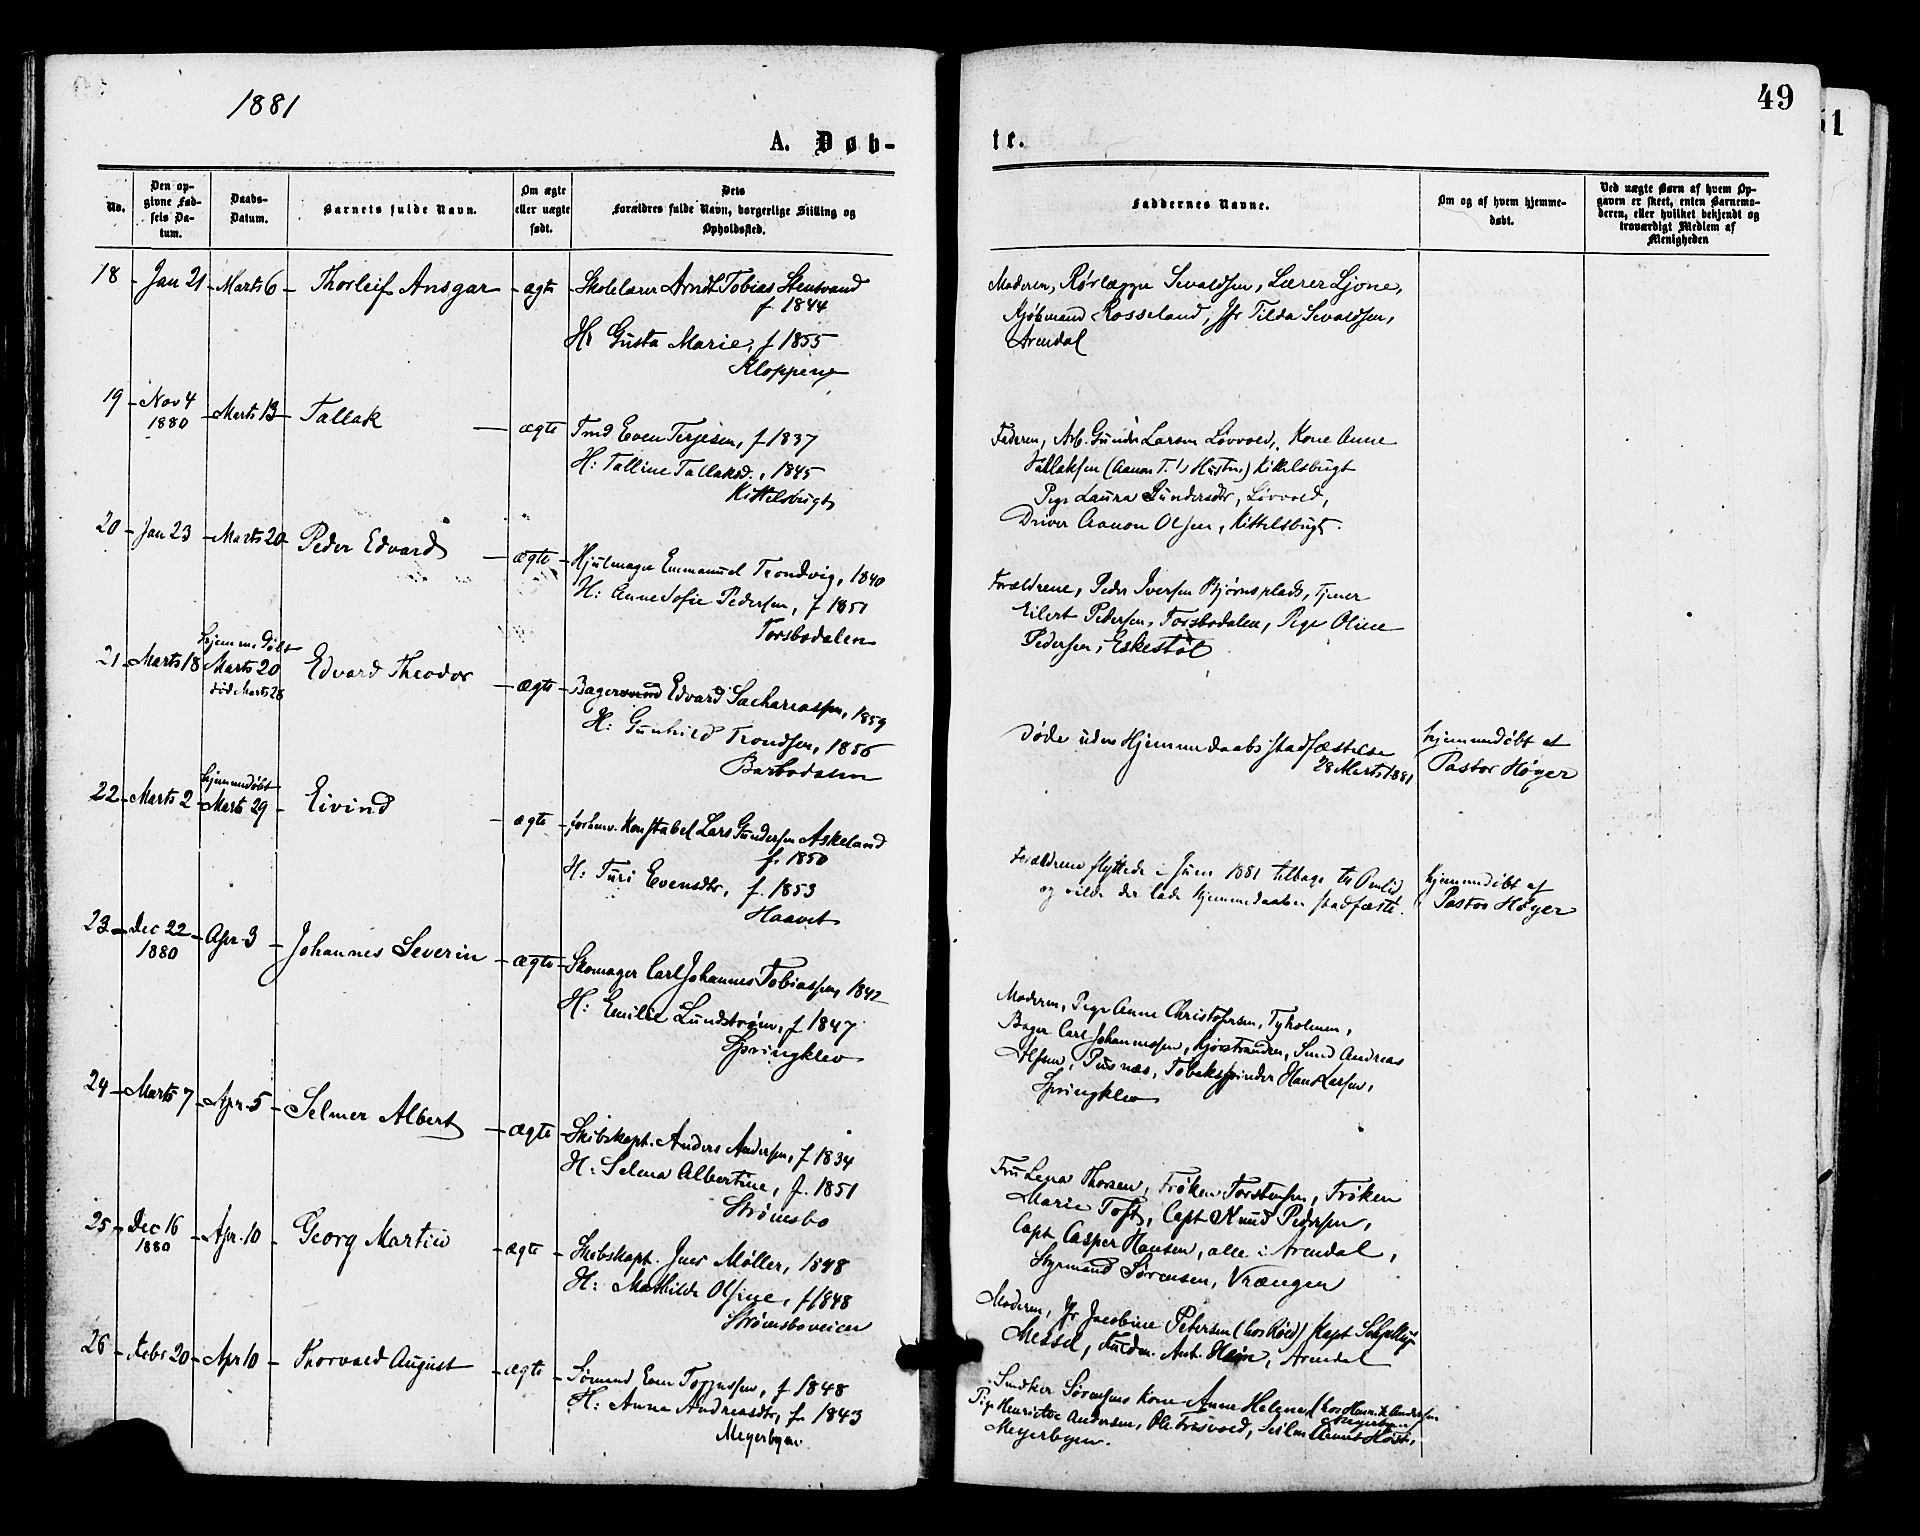 1881
49
51
A. Døb-
te.
No.
Den op-
givne Fød-
sels Da-
tum.
Daabs-
Datum.
Barnets fulde Navn.
Om ægte
eller uægte
født.
Dets
Forældres fulde Navn, borgerlige Stilling og
Opholdssted.
Faddernes Navne.
Om og af hvem hjemme-
døbt.
Ved uægte Børn af hvem Op-
gaven er skeet, enten Barnemo-
deren, eller hvilket bekjendt og
troværdigt Medlem af
Menigheden
18 Jan 21 Marts 6 Thorleif Ansgar ægte Skolelærer Arndt Tobias Stensvand
f 1844
H: Gusta Marie, f 1855
Kloppene
Moderen, Rørlægger Sevaldsen, Lærer Ljone,
Kjøbmand Rosseland, Jfr Tilda Sevaldsen,
Arendal
19 Nov 4 Marts 13 Tallak ægte
1880
Tmd Even Terjesen, f 1837
H: Talline Tallaksd., 1845
Kittelsbugt
Faderen, Arb. Gunder Larsen Løvvold, Kone Anne
Tallaksen (Aanon T.'s Hustru) Kittelsbugt
Pige Laura Gundersdtr, Løvvold,
Driver Aanon Olsen, Kittelsbugt.
20 Jan 23 Marts 20 Peder Edvard ægte
Hjulmager Emmanuel Trondvig, 1840
H: Anne Sofie Pedersen, f 1851
Torsbodalen
Forældrene, Peder Iversen Bjørnsplads, Tjener
Eilert Pedersen, Torsbodalen, Pige Oline
Pedersen, Eskestøl
21 Marts 18 hjemmedøbt
Marts 20
død Marts 28
Edvard Theodor ægte
Bagersvend Edvard Sachariassen, 1859
H: Gunhild Trondsen, 1856
Barbodalen
Døde uden Hjemmedaabs stadfæstelse
28 Marts 1881
hjemmedøbt af
Pastor Høyer
22 Marts 2 hjemmedøbt
Marts 29 Eivind ægte
forhenv. Konstabel Lars Gundersen Askeland
f. 1850
H: Turi Evensdtr, f. 1853
Haavet
Forældrene flyttede i Juni 1881 tilbage til Omlid
og vilde der lade hjemmedaaben stadfæste.
hjemmedøbt af
Pastor Høyer
23 Dec 22 Apr. 3 Johannes Severin ægte
1880
Skomager Carl Johannes Tobiassen, 1842
H: Emilie Lundstrøm, f 1847
Springklev
Moderen, Pige Anne Christofersen, Tyholmen,
Bager Carl Johannessen, Kjørstranden, Smd Andreas
Olsen, Pusnæs, Tobaksspinder Hans Larsen,
Springklev
24 Marts 7 Apr. 5 Selmer Albert ægte
Skibskapt. Anders Andersen, f 1834
H: Selma Albertine, f. 1851
Strømsbo
Fru Lena Thorsen, Frøken Torstensen, Frøken
Marie Toft, Capt Knud Pedersen,
Capt Casper Hansen, alle i Arendal,
Styrmand Sørensen, Vrængen
25 Dec 16 Apr. 10 Georg Martin ægte
1880
Skibskapt. Jens Møller, 1848
H: Mathilde Olsine, f 1848
Strømsboveien
Moderen, Jfr Jacobine Petersen (hos Røed) Kapt
Messel, Fuldm. Ant. Arendal
26 Febr 20 Apr 10 Thorvald August ægte
Sømand Even f 1848
H: Anna Andreasdtr, f. 1843
Meyerbyen
Snedker Sørensens Kone Anne Helene (hos Henrik Andersen
Meyerbyen)
Pige Henriette Andersen, Ole
Meyerbyen.